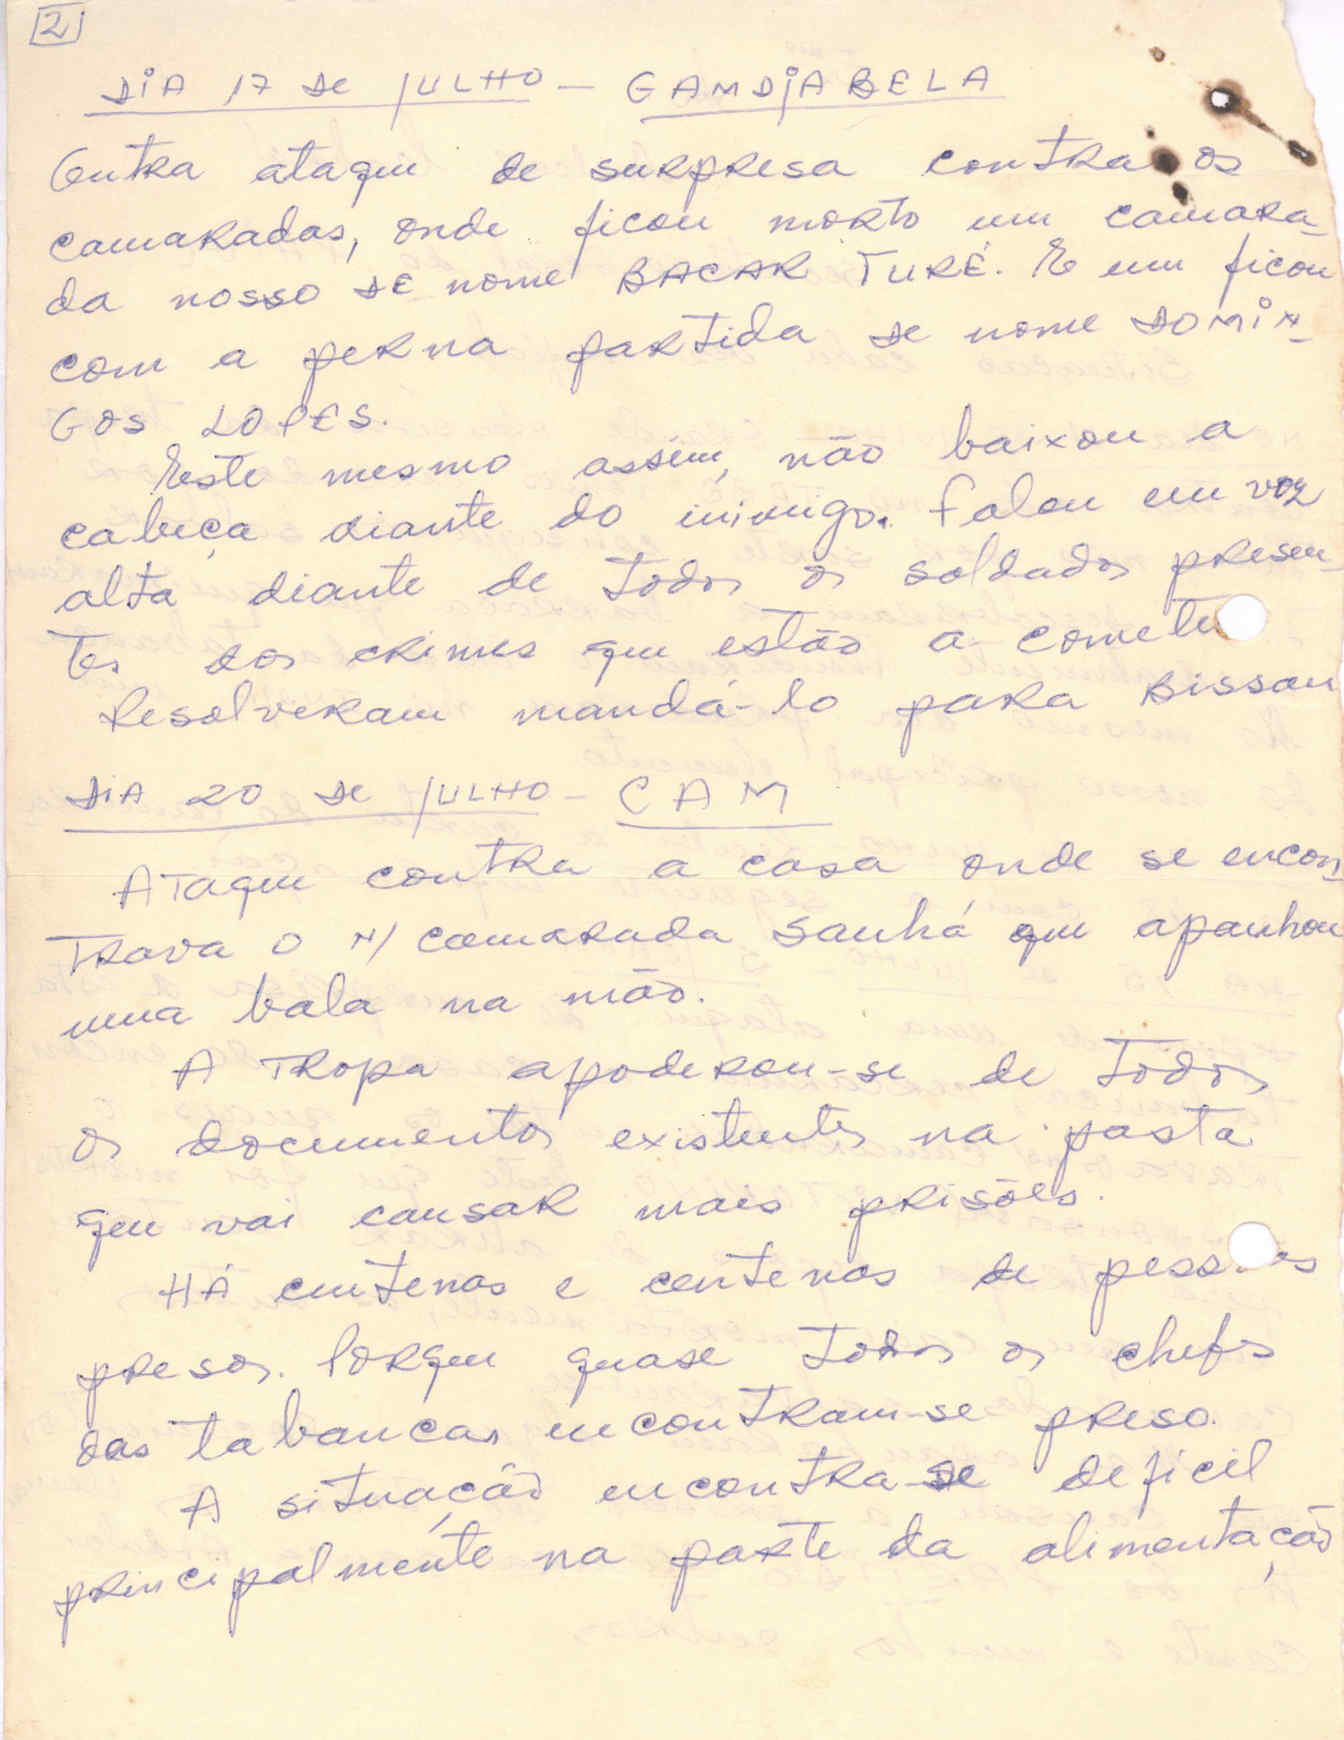 2
DIA 17 DE JULHO - GAMDJABELA
Outra ataque de surpresa contra os
camaradas, onde ficou morto um camara-
da nosso DE nome BACAR TURÉ. E um ficou
com a perna partida de nome DOMIN-
GOS LOPES.
Este mesmo assim, não baixou a
cabeça diante do inimigo. Falou em voz
alta diante de todos os soldados presen-
tes dos crimes que estão a comete
Resolveram mandá-lo para Bissau
DIA 20 DE JULHO - CAM
Ataque contra a casa onde se encon-
trava o N/ camarada Sanhá que apanhou
uma bala na mão.
A tropa apoderou-se de todos
os documentos existentes na pasta
que vai causar mais prisões.
HÁ centenas e centenas de pess as
presos. Porque quase todos os chefes
das tabancas encontram-se preso.
A situação encontra-se deficil
principalmente na parte da alimentação